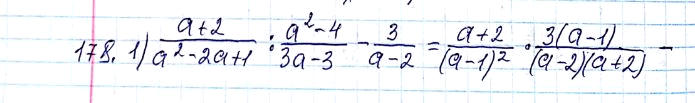 178. 1) \frac{a+2}{a^2-2a+1} : \frac{a^2-4}{3a-3} - \frac{3}{a-2} = \frac{a+2}{(a-1)^2} \cdot \frac{3(a-1)}{(a-2)(a+2)} -